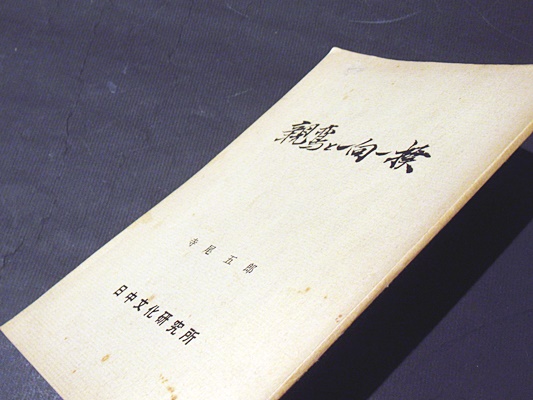 親鸞と一向一揆
寺尾五郎
日中文化研究所